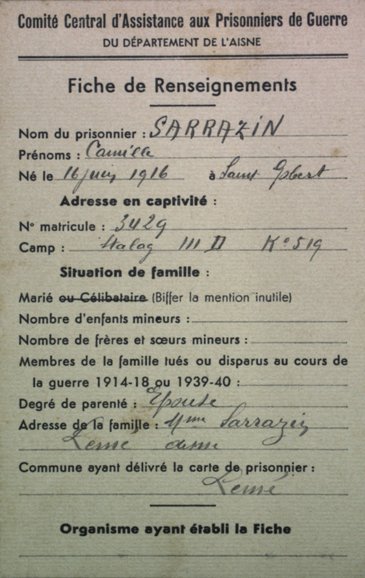 Comité Central d'Assistance aux Prisonniers de Guerre
DU DÉPARTEMENT DE L'AISNE
Fiche de Renseignements
Nom du prisonnier : SARRAZIN
Prénoms : Camille
Né le 16 juin 1916 à Saint Gobert
Adresse en captivité :
N° matricule : 3429
Camp : Stalag III D K° 519
Situation de famille :
Marié ou Célibataire (Biffer la mention inutile)
Nombre d'enfants mineurs :
Nombre de frères et sœurs mineurs :
Membres de la famille tués ou disparus au cours de
la guerre 1914-18 ou 1939-40 :
Degré de parenté : Epouse
Adresse de la famille : Mme Sarrazin
Lemé
Commune ayant délivré la carte de prisonnier :
Lemé
Organisme ayant établi la Fiche